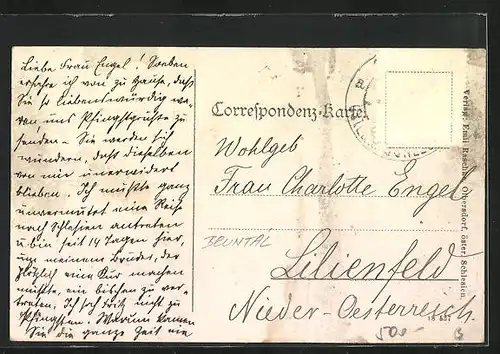 Liebe Frau Engel! Soeben
erfahre ich von zu Hause, daß
Sie so liebenswürdig wa-
ren uns Pfingstgrüße zu
senden – Sie werden sich
wundern, daß dieselben
von mir unerwidert
blieben. Ich mußte ganz
unvermutet eine Reise
nach Schlesien antreten
u. bin seit 14 Tagen hier,
um meinem Bruder, der
plötzlich eine Kur machen
mußte, ein bischen zu ver-
treten. Ich nicht zu
Pfingsten. Warum kamen
Sie die ganze Zeit nie
Correspondenz-Karte
Wohlgeb
Frau Charlotte Engel
Lilienfeld
Nieder-Oesterreich
Verlag: Emil Olbersdorf, österr. Schlesien.
500